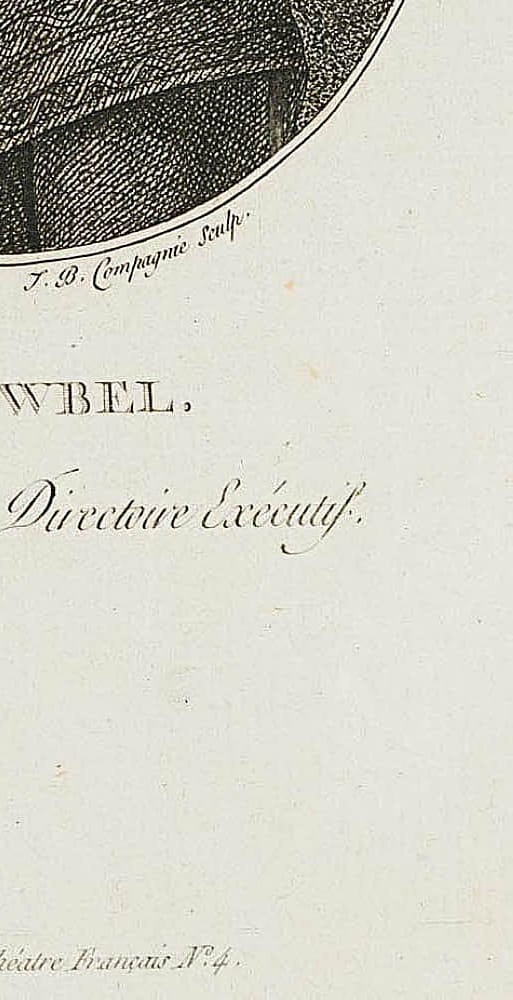 J. B. Compagnie Sculp.
WBEL.
Directoire Exécutif.
héatre Français N.º 4.